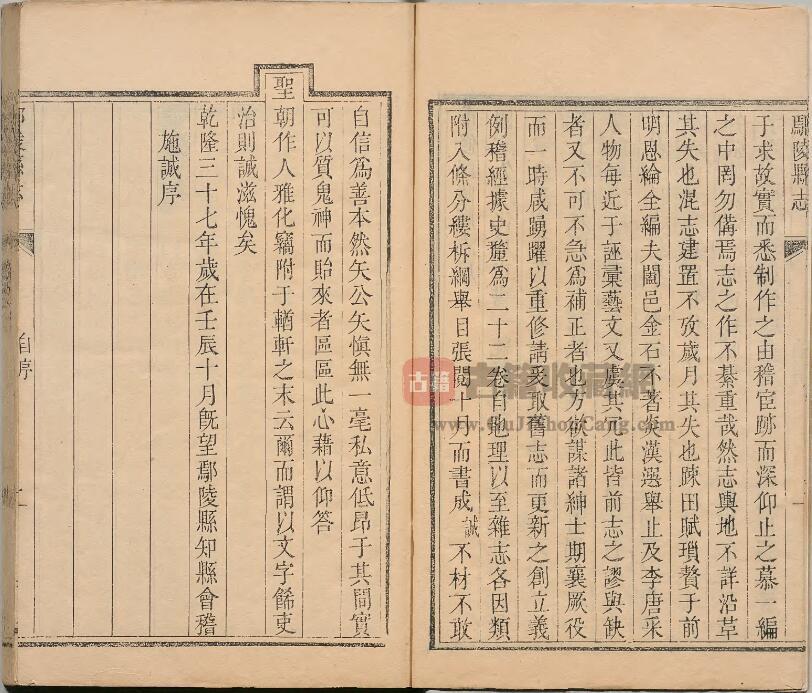 鄢陵縣志
于求故實而悉制作之由稽宦跡而深仰止之慕一編
之中罔勿備焉志之作不綦重哉然志輿地不詳沿革
其失也混志建置不攷歲月其失也疎田賦瑣贅于前
明恩綸全編夫闔邑金石不著炎漢選舉止及李唐采
人物每近于誣彙藝文又虞其冗此皆前志之謬與缺
者又不可不急為補正者也方欲謀諸紳士期襄厥役
而一時咸踴躍以重修請爰取舊志而更新之創立義
例稽經據史釐為二十二卷自地理以至雜志各因類
附入條分縷析綱舉目張閱十月而書成誠不材不敢
自信為善本然矢公矢慎無一毫私意低昂于其間實
可以質鬼神而貽來者區區此心藉以仰答
聖朝作人雅化竊附于輶軒之末云爾而謂以文字餙吏
治則誠滋愧矣
乾隆三十七年歲在壬辰十月既望鄢陵縣知縣會稽
施誠序
自序
古籍
古籍收藏網
www.GuJiShouCang.com